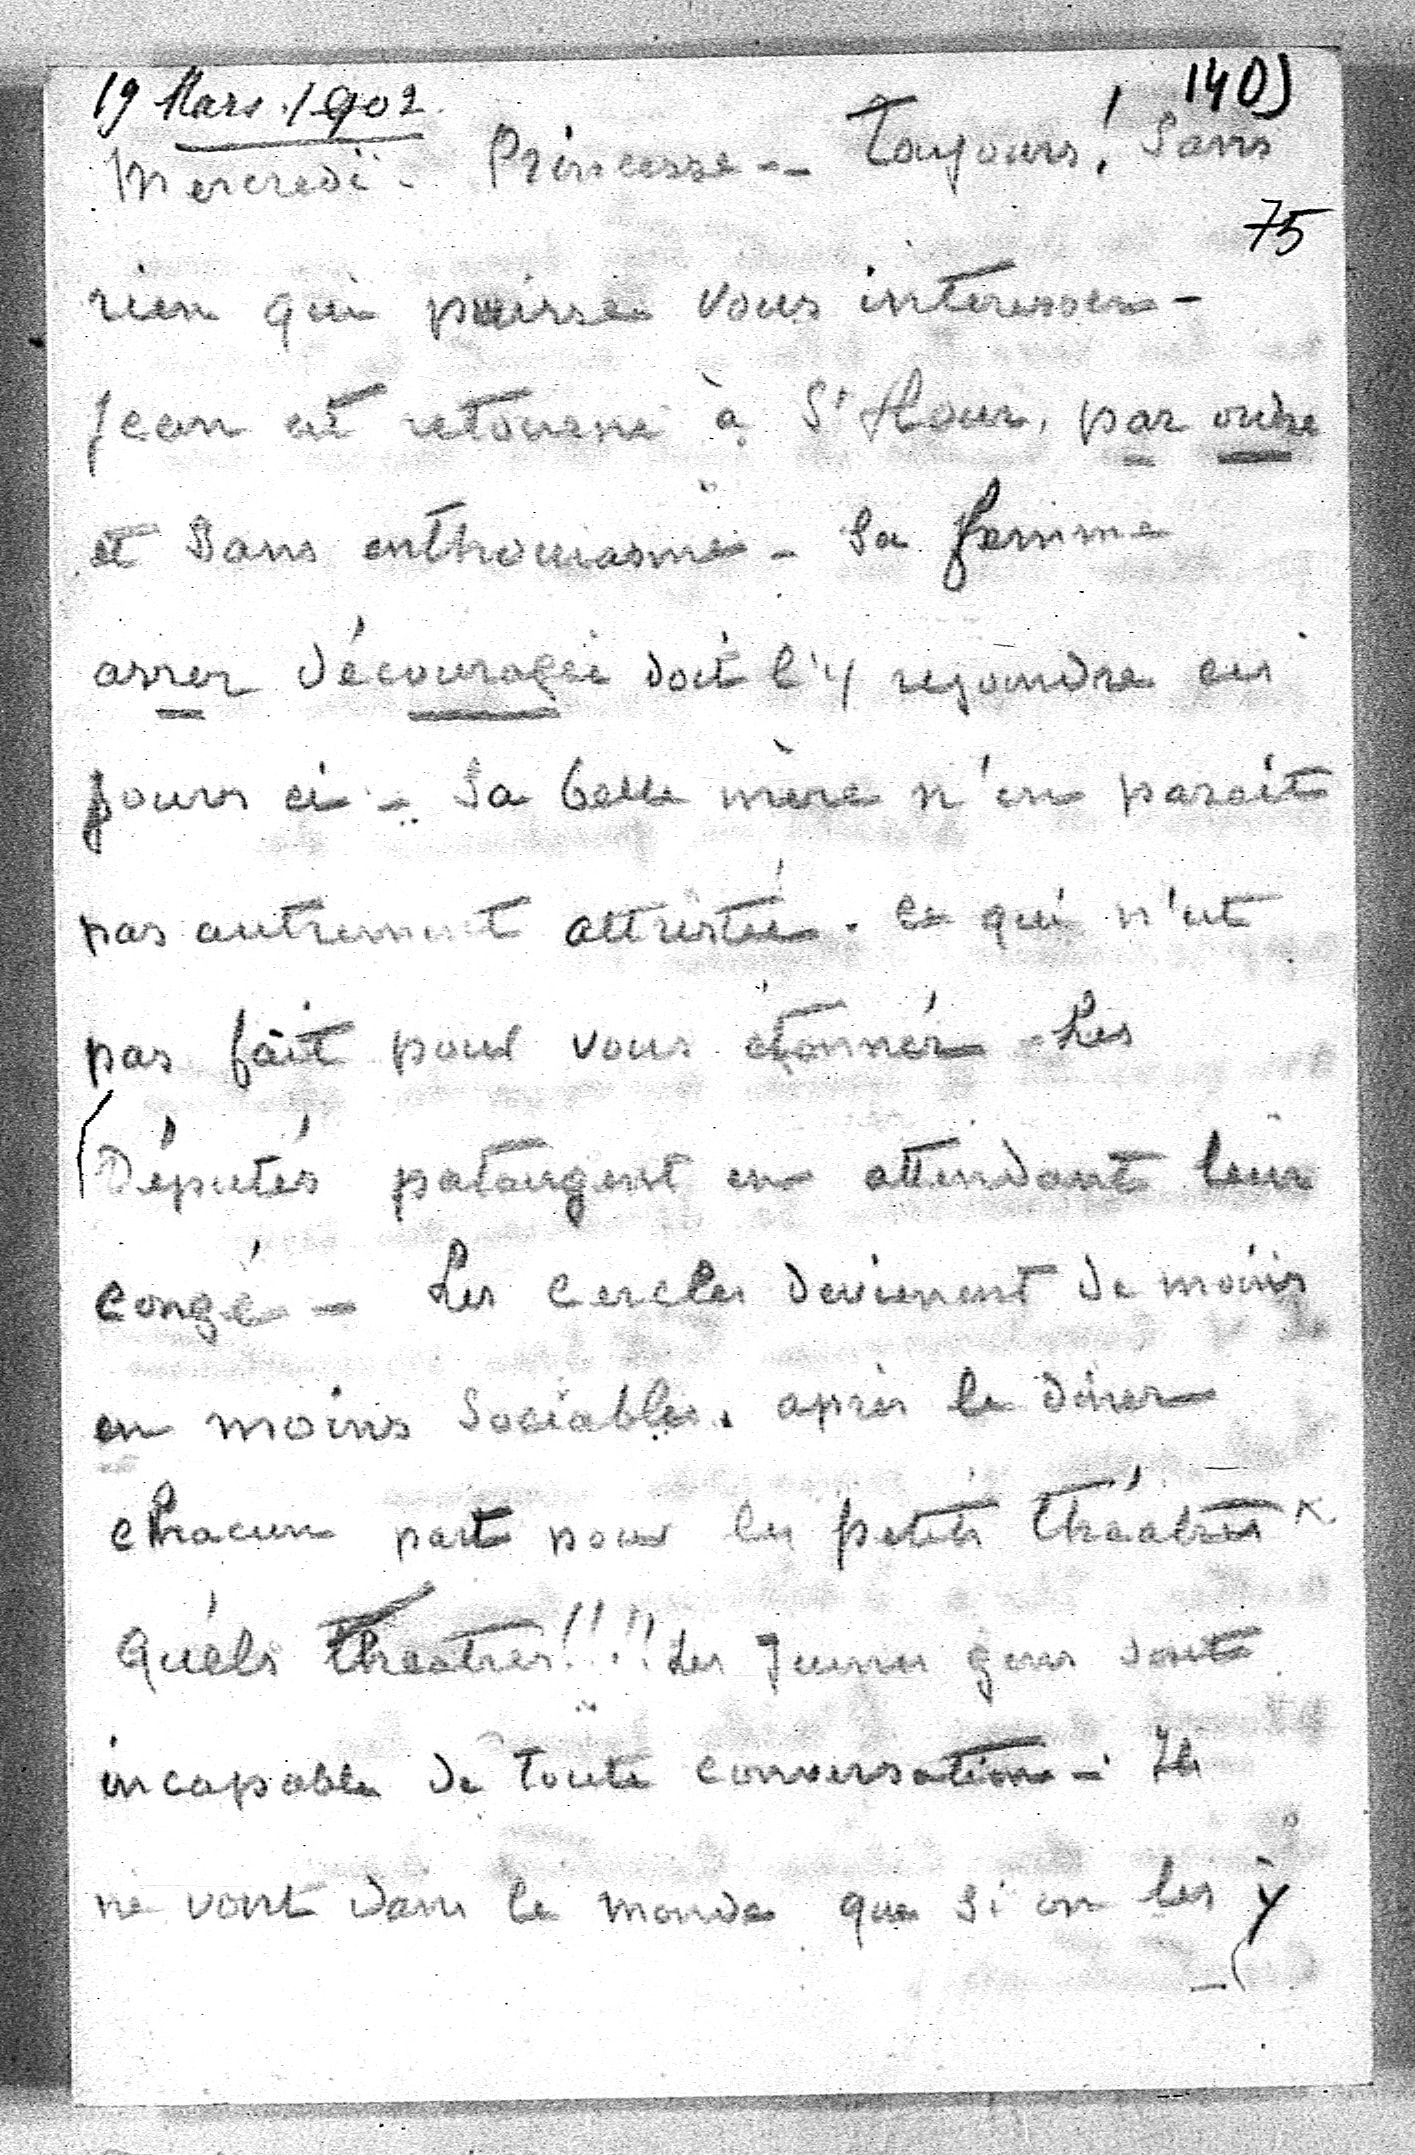 19 Mars. 1902 140)
Mercredi. Princesse -- Toujours! Sans
75
rien qui puisse vous interesser -
Jean est retourné à St Flour, par ordre
et sans enthousiasme - Sa femme
assez découragée doit l'y rejoindre ces
jours ci - Sa belle mère n'en parait
pas autrement attristée. Ce qui n'est
pas fait pour vous étonner - Les
Députés pataugent en attendant leur
congé - Les cercles devienent de moins
en moins sociables. après le diner
chacun part pour les petits théatres
Quels théatres!!!! Les Jeunes gens sont
incapables de toute conversation - Ils
ne vont dans le monde que si on les y